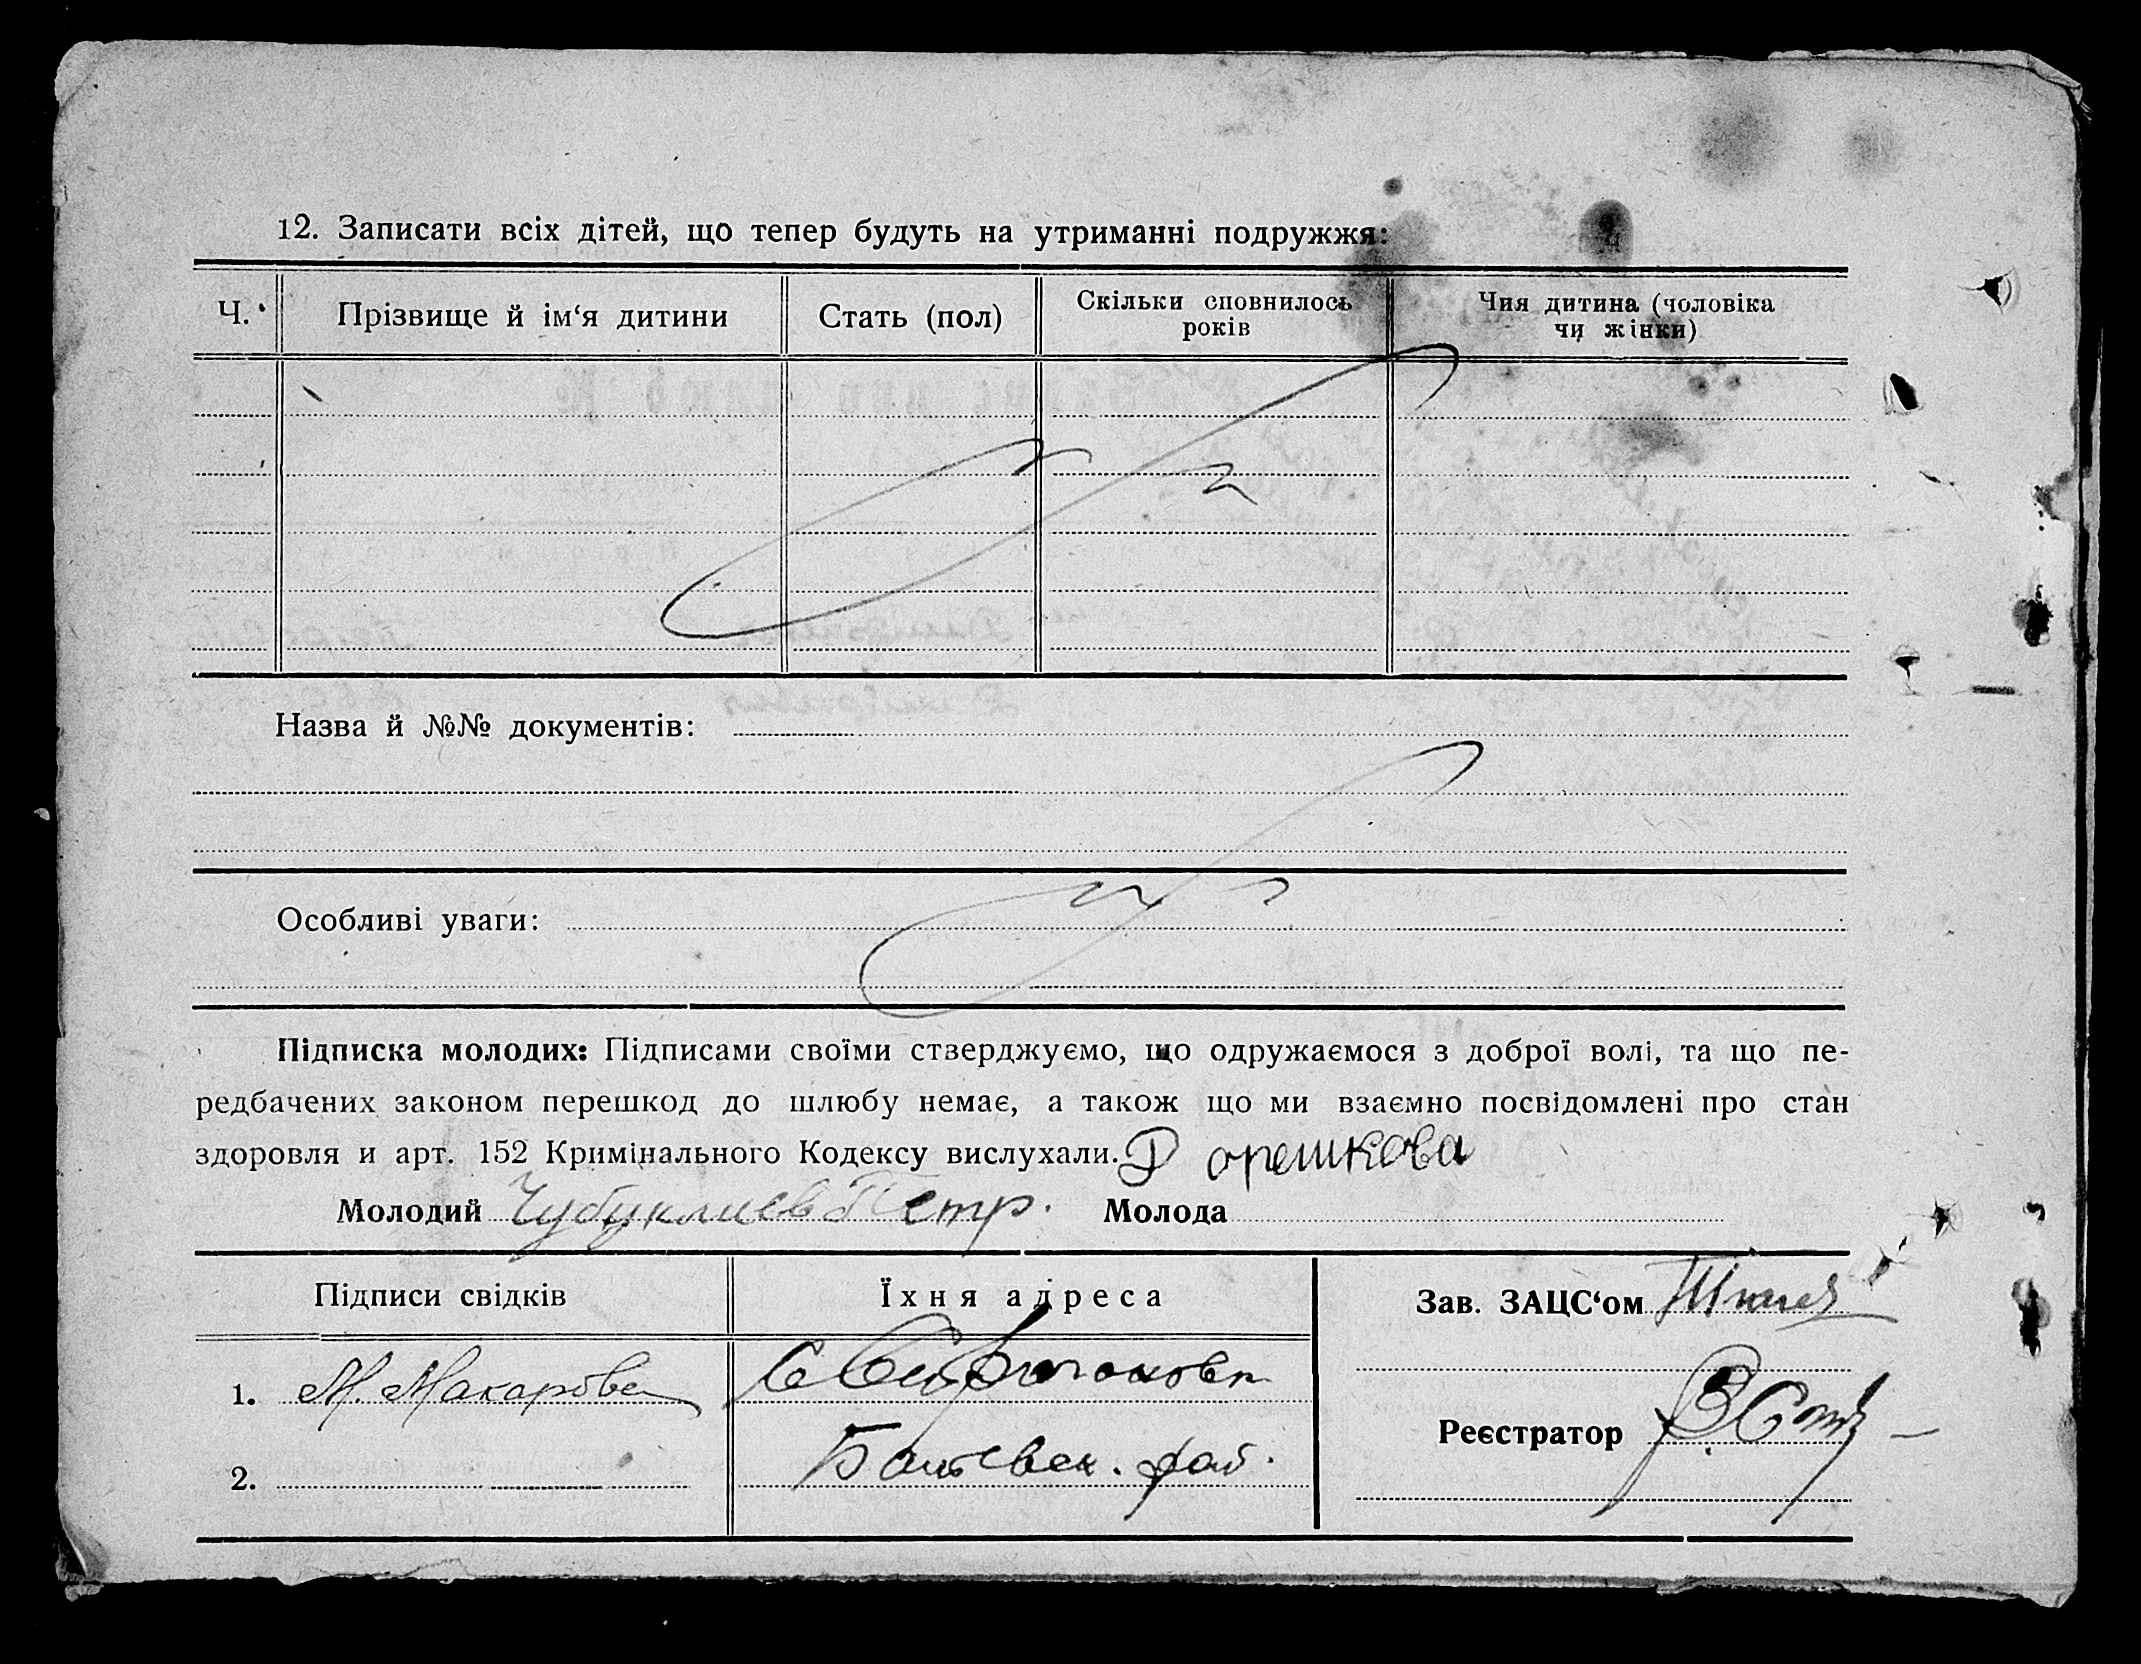 12. Записати всіх дітей, що тепер будуть на утриманні подружжя:
Ч. Прізвище й ім‘я дитини Стать (пол) Скільки сповнилось років Чия дитина (чоловіка чи жінки)
Назва й №№ документів:
Особливі уваги:
Підписка молодих: Підписами своїми стверджуємо, що одружаємося з доброї волі, та що пе-
редбачених законом перешкод до шлюбу немає, а також що ми взаємно посвідомлені про стан
здоровля и арт. 152 Кримінального Кодексу вислухали. орешкова
Молодий Чубуклиев Петр. Молода
Підписи свідків Їхня адреса Зав. ЗАЦС‘ом
1. М. Макарова
Реєстратор
2. рай.